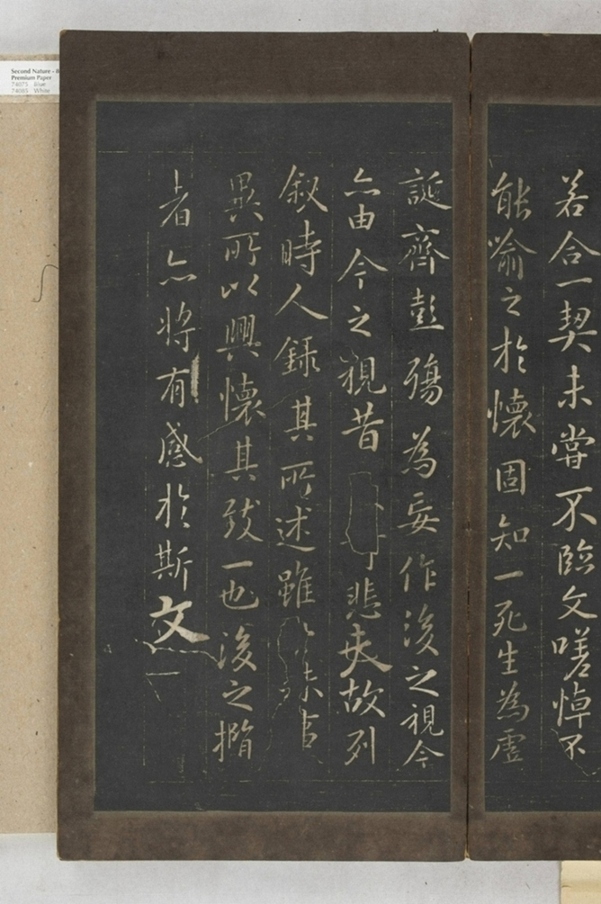 若合一契未嘗不臨文嗟悼不
能喻之於懷固知一死生為虛
誕齊彭殤為妄作後之視今
亦由今之視昔悲夫故列
叙時人錄其所述雖
異所以興懷其致一也後之攬
者亦將有感於斯文
Second Nature
Premium Paper
Blue
White